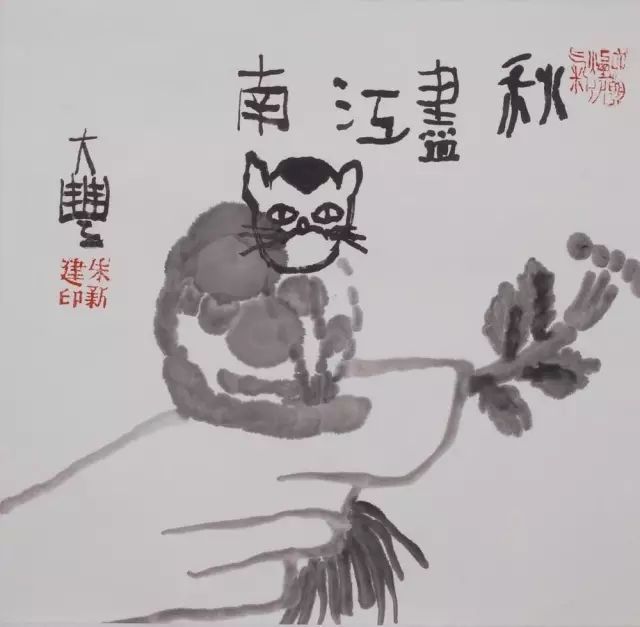 秋盡江南
大豐
朱新建印